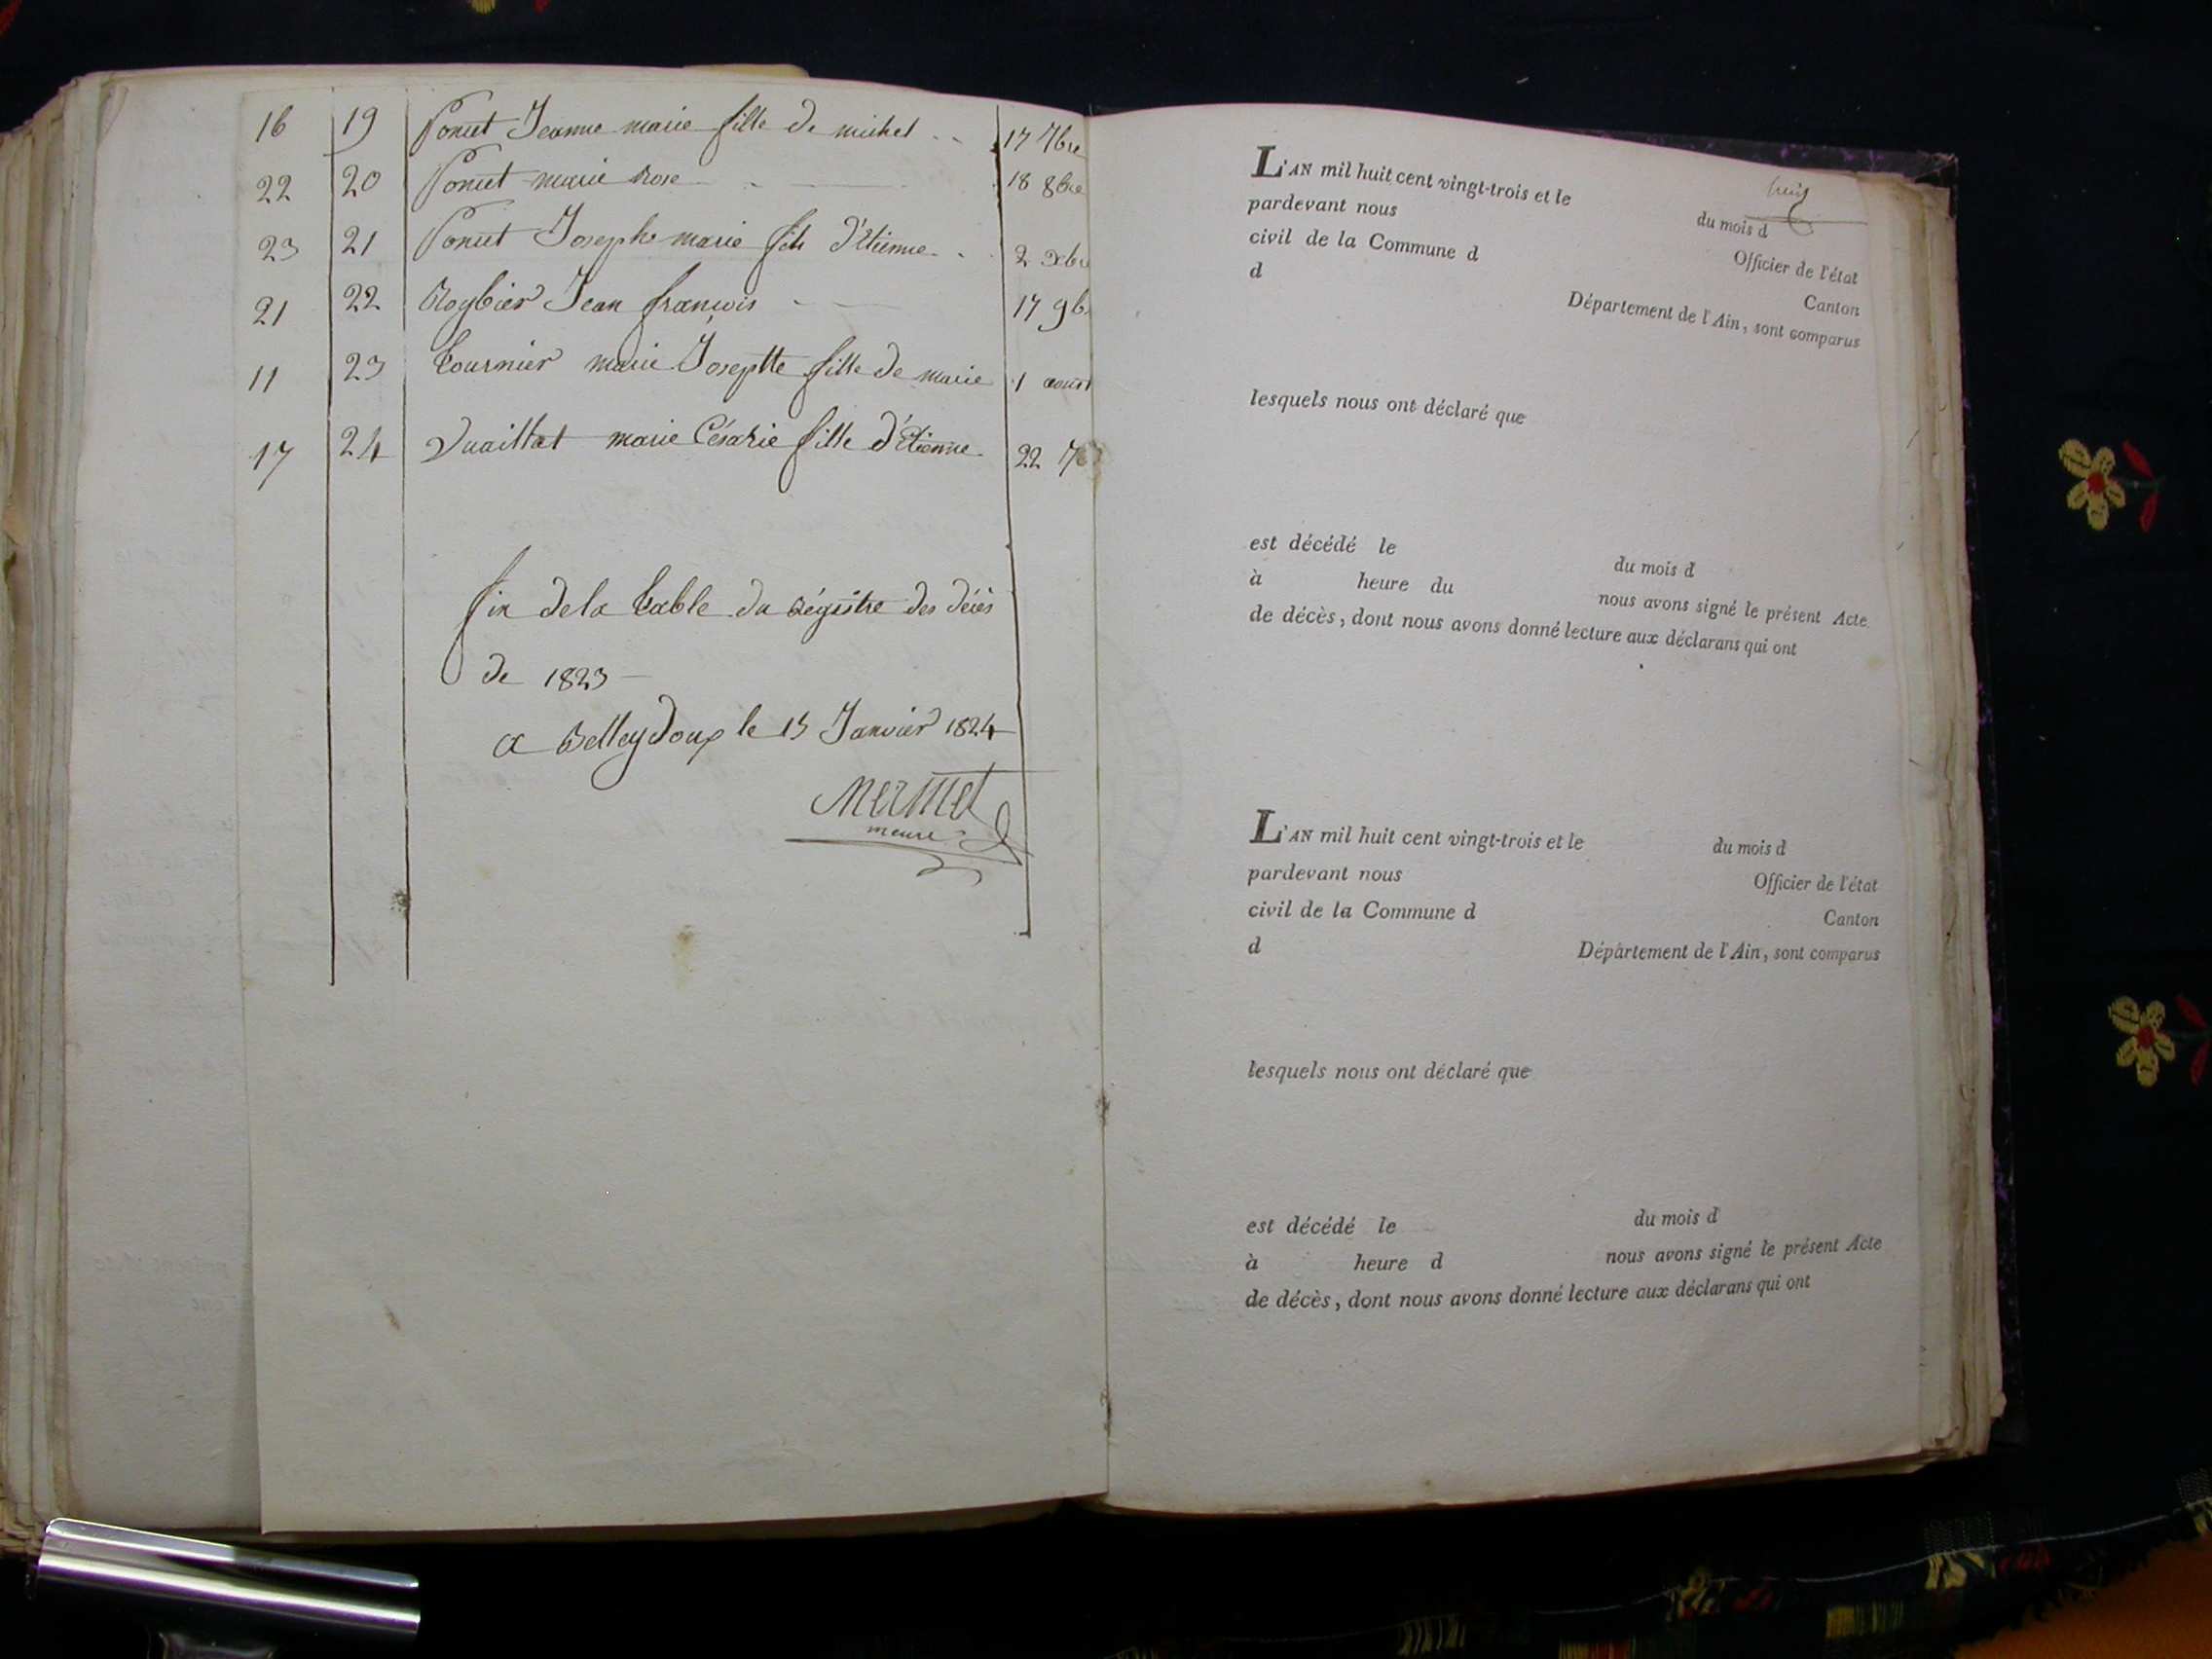 16 19 Poncet Jeanne marie fille de michel 17 7bre
22 20 Poncet marie Rose 18 8bre
23 21 Poncet Joseph marie fils d'Etienne 2 Xbre
21 22 Roybier Jean françois 17 9b
11 23 Tournier marie Josephte fille de marie 1 aoust
17 24 Vuaillat marie Césarie fille d'Etienne 22 7b
fin de la Table du Régistre des décès
de 1823
a Belleydoux le 15 Janvier 1824
Mermet
L'AN mil huit cent vingt-trois et le du mois d
pardevant nous Officier de l'état
civil de la Commune d Canton
d Département de l'Ain, sont comparus
lesquels nous ont déclaré que
est décédé le du mois d
à heure du nous avons signé le présent Acte
de décès, dont nous avons donné lecture aux déclarans qui ont
L'AN mil huit cent vingt-trois et le du mois d
pardevant nous Officier de l'état
civil de la Commune d Canton
d Département de l'Ain, sont comparus
lesquels nous ont déclaré que
est décédé le du mois d
à heure d nous avons signé le présent Acte
de décès, dont nous avons donné lecture aux déclarans qui ont